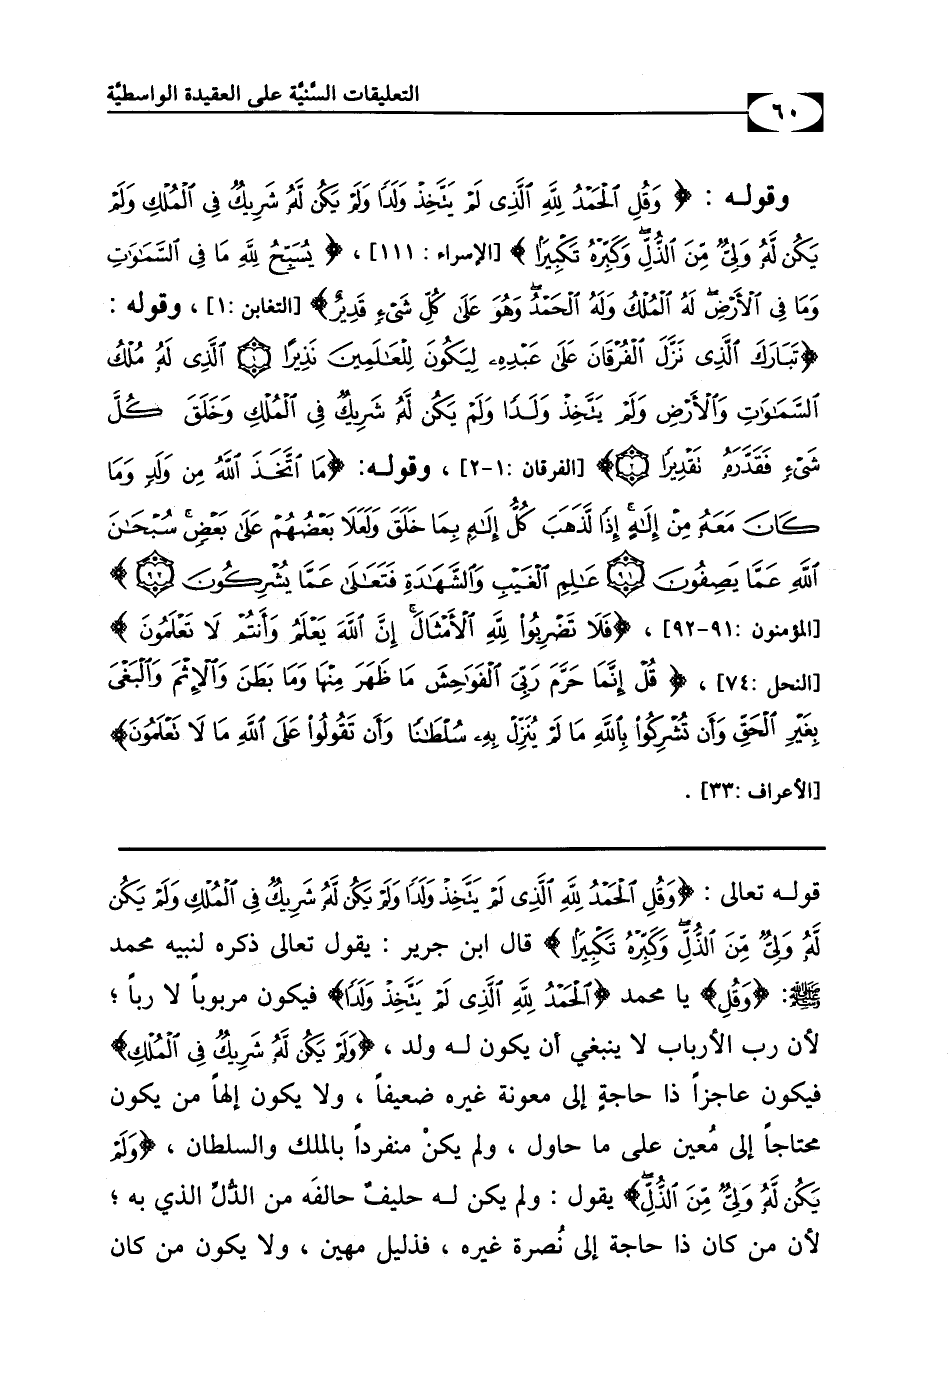 التعليقات السَّنيَّة على العقيدة الواسطيَّة
٦٠
وقولـه : ﴿ وَقُلِ ٱلْحَمْدُ لِلَّهِ ٱلَّذِى لَمْ يَتَّخِذْ وَلَدًا وَلَمْ يَكُن لَّهُۥ شَرِيكٌ فِى ٱلْمُلْكِ وَلَمْ
يَكُن لَّهُۥ وَلِىٌّ مِّنَ ٱلذُّلِّ ۖ وَكَبِّرْهُ تَكْبِيرًۢا ﴾ [الإسراء : ١١١] ، ﴿ يُسَبِّحُ لِلَّهِ مَا فِى ٱلسَّمَٰوَٰتِ
وَمَا فِى ٱلْأَرْضِ ۖ لَهُ ٱلْمُلْكُ وَلَهُ ٱلْحَمْدُ ۖ وَهُوَ عَلَىٰ كُلِّ شَىْءٍ قَدِيرٌ﴾ [التغابن :١] ، وقوله :
﴿تَبَارَكَ ٱلَّذِى نَزَّلَ ٱلْفُرْقَانَ عَلَىٰ عَبْدِهِۦ لِيَكُونَ لِلْعَٰلَمِينَ نَذِيرًا ۝١ ٱلَّذِى لَهُۥ مُلْكُ
ٱلسَّمَٰوَٰتِ وَٱلْأَرْضِ وَلَمْ يَتَّخِذْ وَلَدًا وَلَمْ يَكُن لَّهُۥ شَرِيكٌ فِى ٱلْمُلْكِ وَخَلَقَ كُلَّ
شَىْءٍ فَقَدَّرَهُۥ تَقْدِيرًا ۝٢﴾ [الفرقان :١-٢] ، وقولـه: ﴿مَا ٱتَّخَذَ ٱللَّهُ مِن وَلَدٍ وَمَا
كَانَ مَعَهُۥ مِنْ إِلَٰهٍ ۚ إِذًا لَّذَهَبَ كُلُّ إِلَٰهٍۭ بِمَا خَلَقَ وَلَعَلَا بَعْضُهُمْ عَلَىٰ بَعْضٍ ۚ سُبْحَٰنَ
ٱللَّهِ عَمَّا يَصِفُونَ ۝٩١ عَٰلِمِ ٱلْغَيْبِ وَٱلشَّهَٰدَةِ فَتَعَٰلَىٰ عَمَّا يُشْرِكُونَ ۝٩٢ ﴾
[المؤمنون :٩١-٩٢] ، ﴿فَلَا تَضْرِبُوا۟ لِلَّهِ ٱلْأَمْثَالَ ۚ إِنَّ ٱللَّهَ يَعْلَمُ وَأَنتُمْ لَا تَعْلَمُونَ ﴾
[النحل :٧٤] ، ﴿ قُلْ إِنَّمَا حَرَّمَ رَبِّىَ ٱلْفَوَٰحِشَ مَا ظَهَرَ مِنْهَا وَمَا بَطَنَ وَٱلْإِثْمَ وَٱلْبَغْىَ
بِغَيْرِ ٱلْحَقِّ وَأَن تُشْرِكُوا۟ بِٱللَّهِ مَا لَمْ يُنَزِّلْ بِهِۦ سُلْطَٰنًا وَأَن تَقُولُوا۟ عَلَى ٱللَّهِ مَا لَا تَعْلَمُونَ﴾
[الأعراف :٣٣] .
قولـه تعالى : ﴿وَقُلِ ٱلْحَمْدُ لِلَّهِ ٱلَّذِى لَمْ يَتَّخِذْ وَلَدًا وَلَمْ يَكُن لَّهُۥ شَرِيكٌ فِى ٱلْمُلْكِ وَلَمْ يَكُن
لَّهُۥ وَلِىٌّ مِّنَ ٱلذُّلِّ ۖ وَكَبِّرْهُ تَكْبِيرًۢا ﴾ قال ابن جرير : يقول تعالى ذكره لنبيه محمد
ﷺ: ﴿وَقُلِ﴾ يا محمد ﴿ٱلْحَمْدُ لِلَّهِ ٱلَّذِى لَمْ يَتَّخِذْ وَلَدًا﴾ فيكون مربوباً لا رباً ؛
لأن رب الأرباب لا ينبغي أن يكون لـه ولد ، ﴿وَلَمْ يَكُن لَّهُۥ شَرِيكٌ فِى ٱلْمُلْكِ﴾
فيكون عاجزاً ذا حاجةٍ إلى معونة غيره ضعيفاً ، ولا يكون إلهاً من يكون
محتاجاً إلى مُعين على ما حاول ، ولم يكنْ منفرداً بالملك والسلطان ، ﴿وَلَمْ
يَكُن لَّهُۥ وَلِىٌّ مِّنَ ٱلذُّلِّ ۖ﴾ يقول : ولم يكن لـه حليفٌ حالفَه من الذُّلِّ الذي به ؛
لأن من كان ذا حاجة إلى نُصرة غيره ، فذليل مهين ، ولا يكون من كان